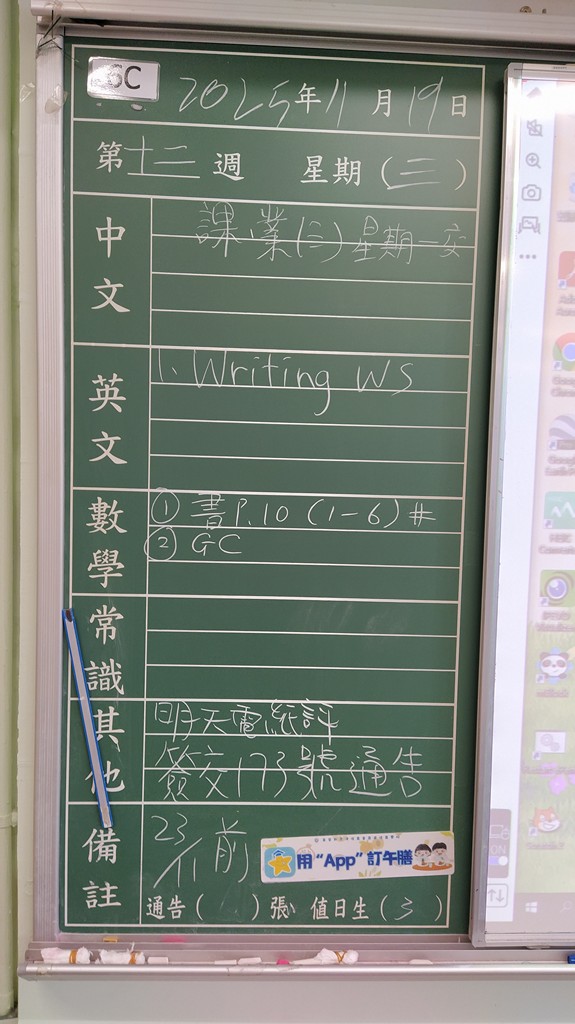 6C
2025年11月19日
第十二週 星期(三)
中文
課業(三)星期一交
英文
1. Writing WS
數學
① 書P.10 (1-6)#
② GC
常識
其他
明天電紙評
簽交173號通告
備註
23/11前
用“App”訂午膳
通告( )張 值日生(3)
ON